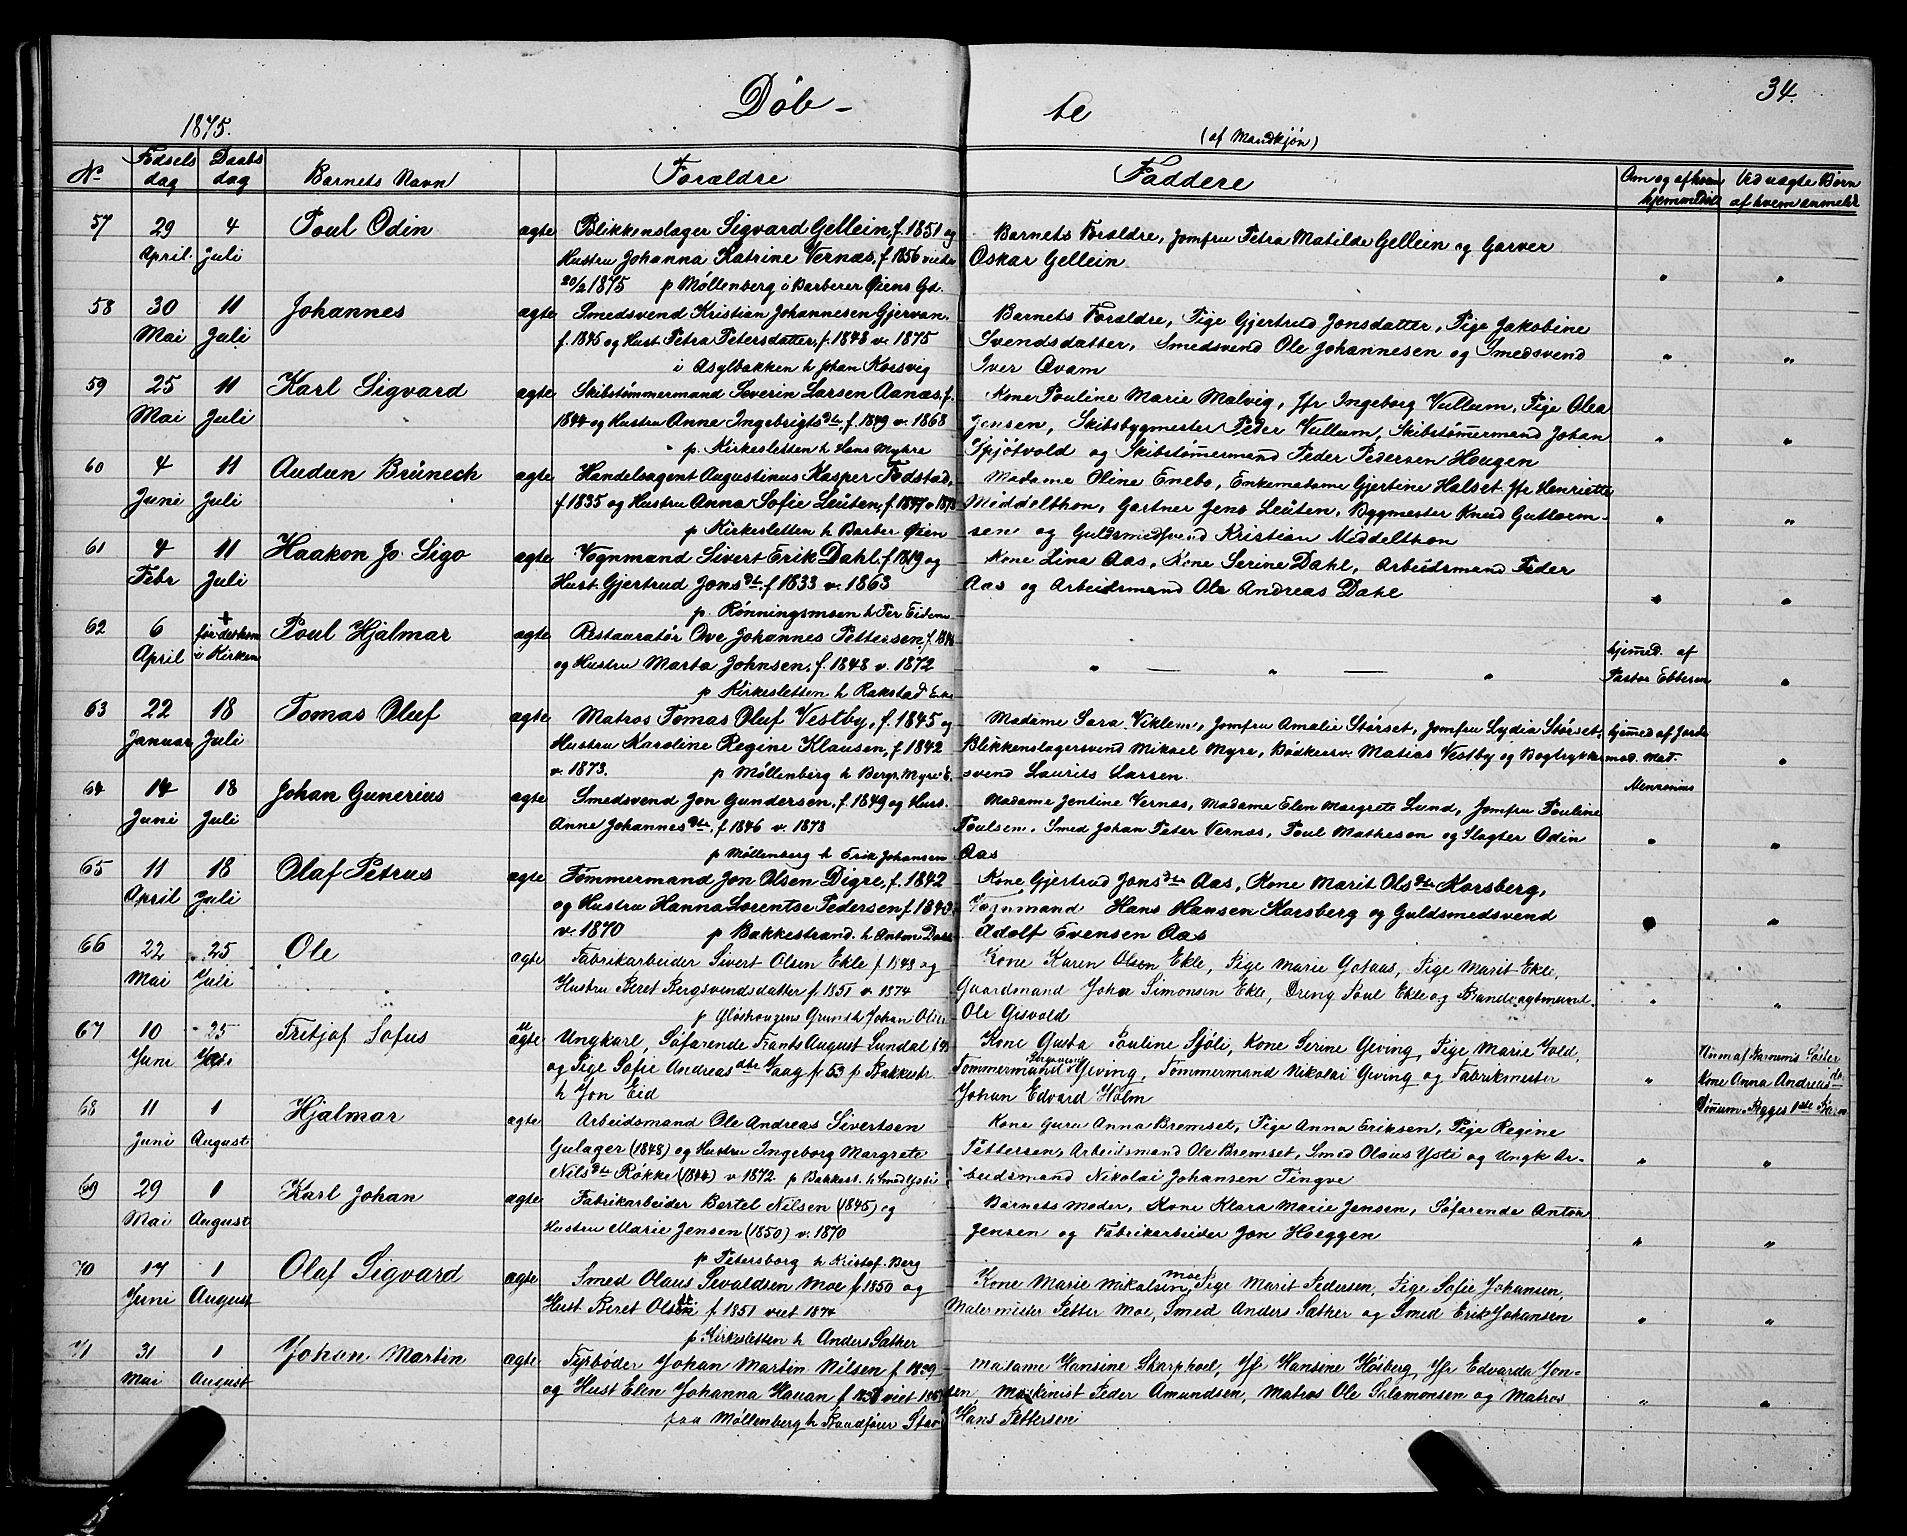 34.
Döb- te
1875.
(af Mandkjøn)
No Fødsels dag Daabs dag Barnets Navn Forældre Faddere Om og af hvem hjemmedøbt Ved uægte Børn af hvem anmeldt
57 29 4 Poul Odin ægte Blikkenslager Sigvard Gellein, f. 1851 og Barnets Forældre, Jomfru Petra Matilde Gellein og Garver
April Juli Hustru Johanna Katrine Vernæs, f. 1856 viede Oskar Gellein
20/2 1875 p Møllenberg i Barberer Øiens Gd. " "
58 30 11 Johannes ægte Smedsvend Kristian Johannesen Gjervan, Barnets Forældre, Pige Gjertrud Jonsdatter, Pige Jakobine
Mai Juli f. 1845 og Hust. Petra Petersdatter, f. 1848 v. 1875 Svendsdatter, Smedsvend Ole Johannesen og Smedsvend " "
i Asylbakken h Johan Korsvig Iver Qvam
59 25 11 Karl Sigvard ægte Skibstømmermand Severin Larsen Aanæs, f. Kone Pauline Marie Malvig, Jfr Ingeborg Vullum, Pige Olea
Mai Juli 1844 og Hustru Anne Ingebrigtsdtr, f. 1849 v. 1868 Jensen, Skibsbygmester Peder Vullum, Skibstømermand Johan " "
p. Kirkesletten h Hans Myhre Spjøtvold og Skibstømermand Peder Pedersen Hougen
60 4 11 Audun Brünech ægte Handelsagent Augustinus Kasper Fodstad, Madame Oline Enebo, Enkemadame Gjertine Halset, Jfr Henriette
Juni Juli f. 1835 og Hustru Anna Sofie Leüten, f. 1847 v. 1873 Middelthon, Gartner Jens Leüten, Bygmester Knud Guttorm- " "
p Kirkesletten h Barber Øien sen og Guldsmedsvend Kristian Middelthon
61 4 11 Haakon Jo. Sigo ægte Vognmand Sivert Erik Dahl, f. 1819 og Kone Lina Aas, Kone Serine Dahl, Arbeidsmand Peder
Febr Juli Hust. Gjertrud Jonsdtr. f. 1833 v. 1863 Aas og Arbeidsmand Ole Andreas Dahl " "
p. Rønningsmsen h Per Eidem
62 6 + før det kom Poul Hjalmar ægte Restauratør Ove Johannes Pettersen, f. 1846
April i Kirken og Hustru Marta Johnsen, f. 1848 v. 1872 " — " — " hjemed. af
p Kirkesletten h Rakstad Pastor Ebbesen "
63 22 18 Tomas Oluf ægte Matros Tomas Oluf Vestby, f. 1845 og Madame Sara Viklem, Jomfru Amalie Størset, Jomfru Lydia Størset, hjemed af Jorde
Januar Juli Hustru Karoline Regine Klausen, f. 1842 Blikkenslagersvend Mikael Myre, Bødkersv. Matias Vestby og Bogtrykker mod. Mad.
v. 1873. p Møllenberg h Bergs. Myre E. svend Laurits Larsen. "
64 14 18 Johan Gunerius ægte Smedsvend Jon Gundersen, f. 1849 og Hust. Madame Jentine Vernæs, Madame Elen Margrete Lund, Jomfru Pouline
Juni Juli Anne Johannesdtr, f. 1846 v. 1873 Poulsen, Smed Johan Peter Vernæs, Poul Matheson og Slagter Odin " "
p Møllenberg h Erik Johansen Aas
65 11 18 Olaf Petrus ægte Tømmermand Jon Olsen Digre, f. 1842 Kone Gjertrud Jonsdtr Aas, Kone Marit Olsdtr Korsberg,
April Juli og Hustru Hanna Lorentse Pedersen, f. 1843 Vognmand Hans Hansen Korsberg og Guldsmedsvend "
v. 1870 p Bakkestrand. h Anton Dahl Adolf Evensen Aas
66 22 25 Ole ægte Fabrikarbeider Sivert Olsen Ekle f 1843 og Kone Karen Olsen Ekle, Pige Marie Gotaas, Pige Marit Ekle,
Mai Juli Hustru Beret Bergsvendsdatter f. 1851 v. 1874 Gaardmand John Simonsen Ekle, Dreng Poul Ekle og Brandvagtmand " "
p Gløshaugens Grund h Johan Olsen Ole Gisvold
67 10 25 Fritjof Sofus uægte Ungkarl, Søfarende Frants August Lundal Kone Gusta Pauline Sjøli, Kone Serine Geving, Pige Marie Vold,
Juni Juli og Pige Sofie Andreasdtr Vaag f. 53 p Bakkestr. Tømmermand Geving, Tømmermand Nikolai Geving og Fabrikmester " Kone Anna Andreasdtr
h Jon Eid Johan Edvard Holm
68 11 1 Hjalmar ægte Arbeidsmand Ole Andreas Sivertsen Kone Guru Anna Bremset, Pige Anna Eriksen, Pige Regine
Juni August Gulager (1848) og Hustru Ingeborg Margrete Pettersen, Arbeidsmand Ole Bremset, Smed Olaus Ysti og Ungk Ar- " "
Nilsdtr Røkke (1844) v 1872 p Bakkest. h Smed Ysti beidsmand Nikolai Johansen Tingve
69 29 1 Karl Johan ægte Fabrikarbeider Bertel Nilsen (1845) og Barnets Moder, Kone Klara Marie Jensen, Søfarende Anton
Mai August Hustru Marie Jensen (1850) v. 1870 Jensen og Fabrikarbeider Jon Hoeggen " "
p Petersborg h Kristof. Berg
70 17 1 Olaf Sigvard ægte Smed Olaus Sivaldsen Moe f 1850 og Kone Marie Mikalsen Moe, Pige Marit Pedersen, Pige Sofie Johansen,
Juni August Hust Beret Olsen f 1851 viet 1874 Malermester Petter Moe, Smed Anders Sæther og Smed Erik Johansen " "
p Kirkesletten h Anders Sæther
71 31 1 Johan Martin ægte Fyrbøder Johan Martin Nilsen f 1839 Madame Hansine Skarphoel, Jfr Hansine Høiberg, Jfr Edvarda Jon-
Mai August og Hust Elen Johanna Hauan f 1837 viet sen Maskinist Peder Amundsen, Matros Ole Salamonsen og Matros " "
paa Møllenberg h Hans Pettersen